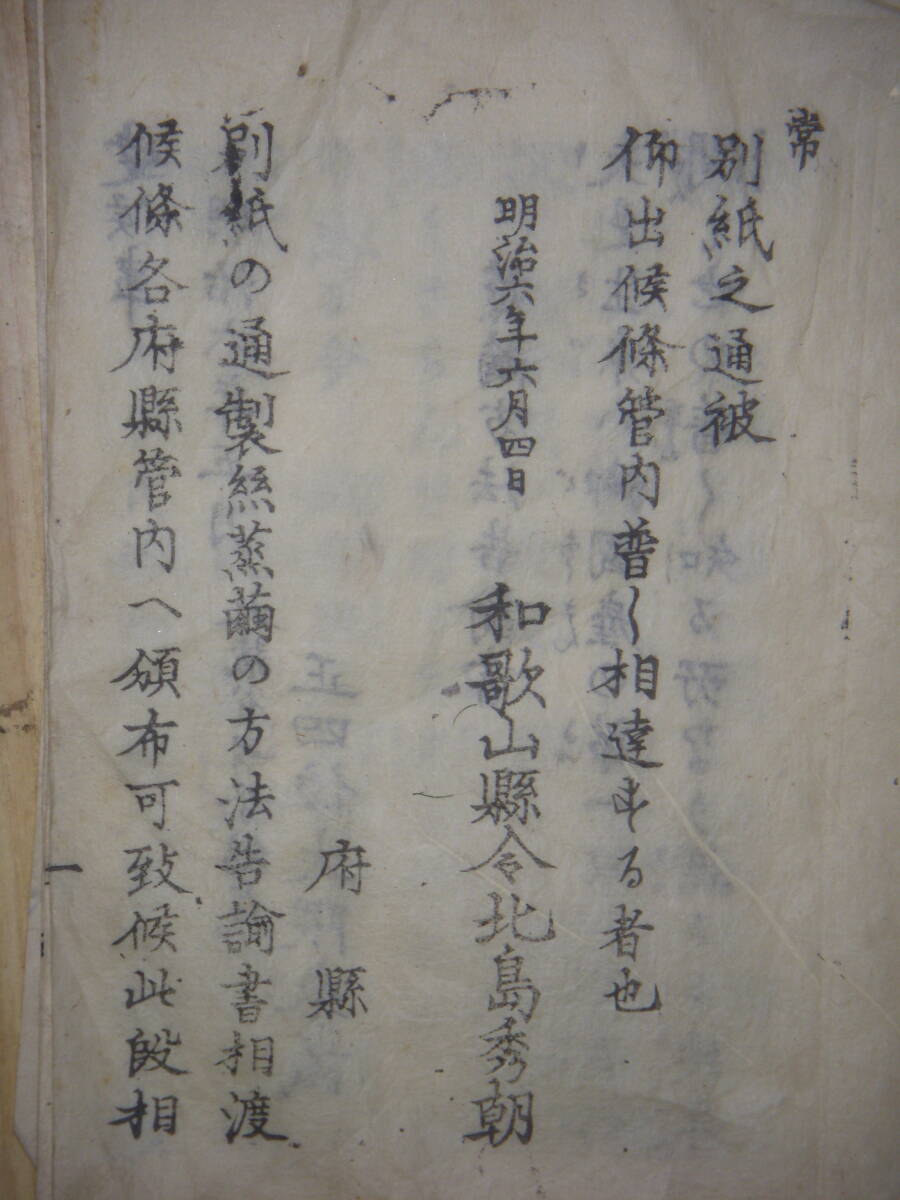 常
別紙之通被
仰出候條管内普く相達する者也
明治六年六月四日
和歌山縣令北島秀朝
府縣
別紙の通製絲蒸繭の方法告諭書相渡
候條各府縣管内へ頒布可致候此段相
一